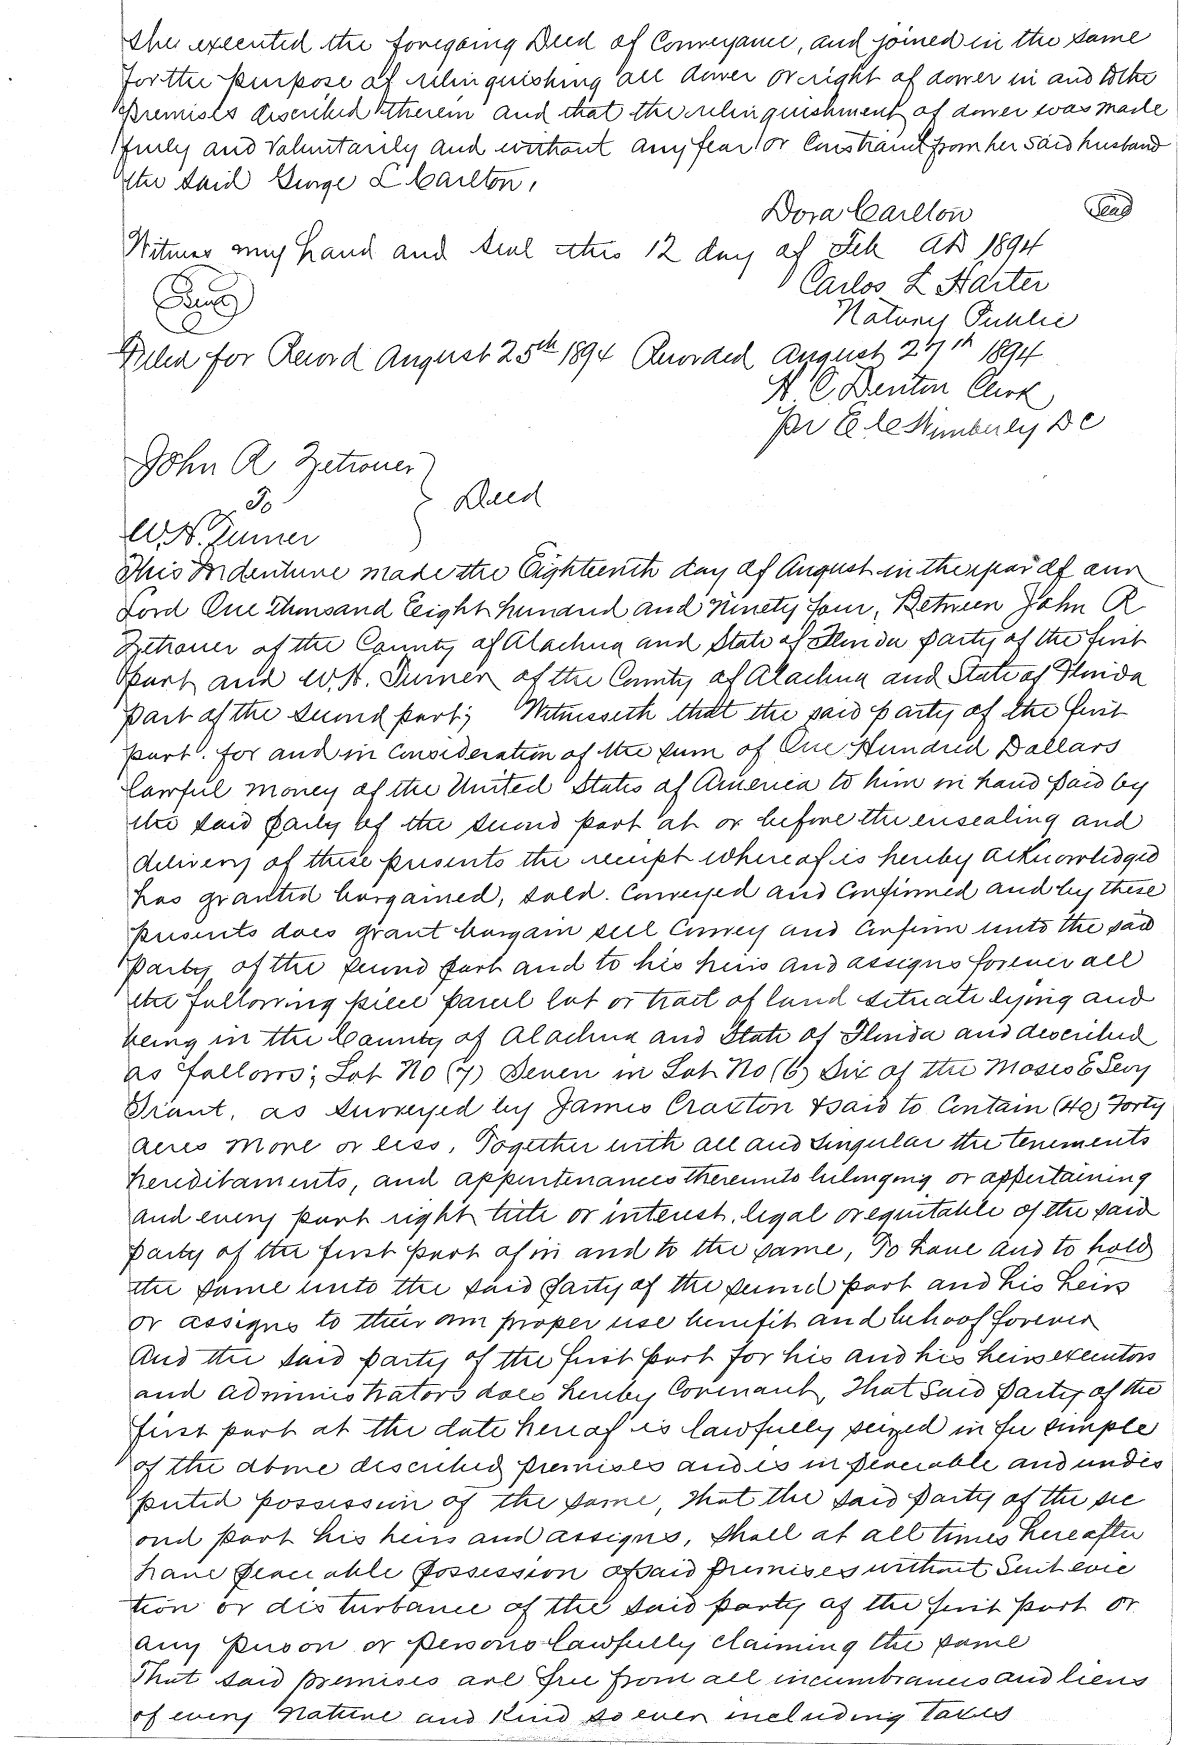 She executed the foregoing Deed of Conveyance, and joined in the same
for the purpose of relinquishing all dower or right of dower in and to the
premises described therein and that the relinquishment of dower was made
freely and voluntarily and without any fear or Constraint from her said husband
the said George L Carlton,
Dora Carlton Seal
Witness my hand and seal this 12 day of Feb AD 1894
Carlos L Harter
Seal
Notary Public
Filed for Record August 25th 1894 Recorded August 27th 1894
H. C. Denton Clerk
Per E. C. Wimberly D C
John R Zetrouer
To
Deed
W. H. Turner
This Indenture made the Eighteenth day of August in the year of our
Lord One Thousand Eeight hundred and Ninety four, Between John R
Zetrouer of the County of Alachua and State of Florida party of the first
part and W. H. Turner of the County of Alachua and State of Florida
part of the second part; Witnesseth that the said party of the first
part. for and in Consideration of the sum of One Hundred Dollars
lawful money of the United States of America to him in hand paid by
the said party of the second part at or before the ensealing and
delivery of these presents the receipt whereof is hereby acknowledged
has granted bargained, sold. Conveyed and Confirmed and by these
presents does grant bargain sell Convey and Confirm unto the said
party of the second part and to his heirs and assigns forever all
the following piece parcel lot or tract of land situate lying and
being in the County of Alachua and State of Florida and described
as follows; Lot No (7) Seven in Lot No (6) Six of the Moses E Levy
Grant, as surveyed by James Croxton & said to Contain (40) Forty
acres more or less, Together with all and singular the tenements
hereditaments, and appurtenances thereunto belonging or appertaining
and every part right title or interest, legal or equitable of the said
party of the first part of in and to the same, To have and to hold
the same unto the said party of the second part and his heirs
or assigns to their own proper use benefit and behoof forever
And the said party of the first part for his and his heirs executors
and administrators does hereby Covenant, That said party of the
first part at the date hereof is lawfully seized in fee simple
of the above described premises and is in peaceable and undis
puted possession of the same, that the said party of the sec
ond part his heirs and assigns, shall at all times hereafter
have peaceable possession of said premises without Suit evic
tion or disturbance of the said party of the first part or
any person or persons lawfully claiming the same
That said premises are free from all incumbrances and liens
of every nature and kind soever including taxes